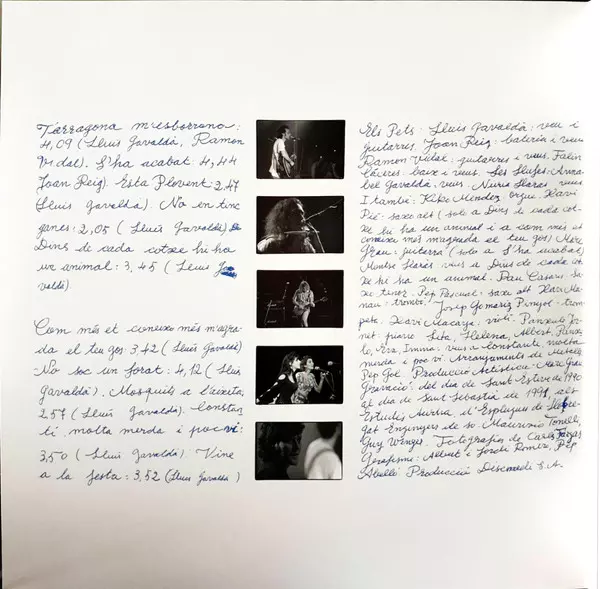 Tarragona m'esborrona:
4,09 (Lluís Gavaldà, Ramon
Vidal). S'ha acabat: 4,44
Joan Reig). Està Plovent 2,47
Lluís Gavaldà). No en tinc
ganes: 2,05 (Lluís Gavaldà)
Dins de cada cotxe hi ha
un animal: 3,45 (Lluís Ga
valdà).
Com més et coneixo més m'agra
da el teu gos: 3,42 (Lluís Gavaldà)
No soc un forat: 4,12 (Lluís
Gavaldà). Mosquits a l'aixeta,
2,57 (Lluís Gavaldà). Constan
tí, molta merda i poc vi:
3,50 (Lluís Gavaldà). Vine
a la festa: 3,52 (Lluís Gavaldà)
Els Pets: Lluís Gavaldà: veu i
guitarres. Joan Reig: bateria i veus
Ramon Vidal: guitarres i veus. Falin
Cáceres: baix i veus. Les Llufes: Anna
bel Gavaldà, veus. Núria Llaràs veus
I també: Kike Mendez orgue. Xavi
Pié: saxo alt (solo a Dins de cada cot-
xe hi ha un animal i a com més et
coneixo més m'agrada el teu gos) Marc
Grau: guitarra (solo a S'ha acabat)
Montse Llaràs: veus a Dins de cada cot
xe hi ha un animal. Pau Casares sa-
xo tenor. Pep Pascual: saxo alt Xavi Ma
trombó. Josep Gomariz Pinyol: trom
peta. Xavi Macaya: violí.
piano Lita, Helena, Albert,
lo, Eva, Imma: veus a Constantí, molta
merda i poc vi. Arrangaments de Metalls
Pep Gol. Producció Artística: Marc Grau
Gravació: del dia de Sant Esteve de 1990
al dia de Sant Sebastià de 1991, als
Estudis Aurha, d'Esplugues de Llobre
gat Enginyer de so. Maurizio Tonelli,
Guy Winger. Fotografies de Carles Fargas
Grafisme: Albert i Jordi Romero, Pep
Abelló Producció Discmedi S.A.